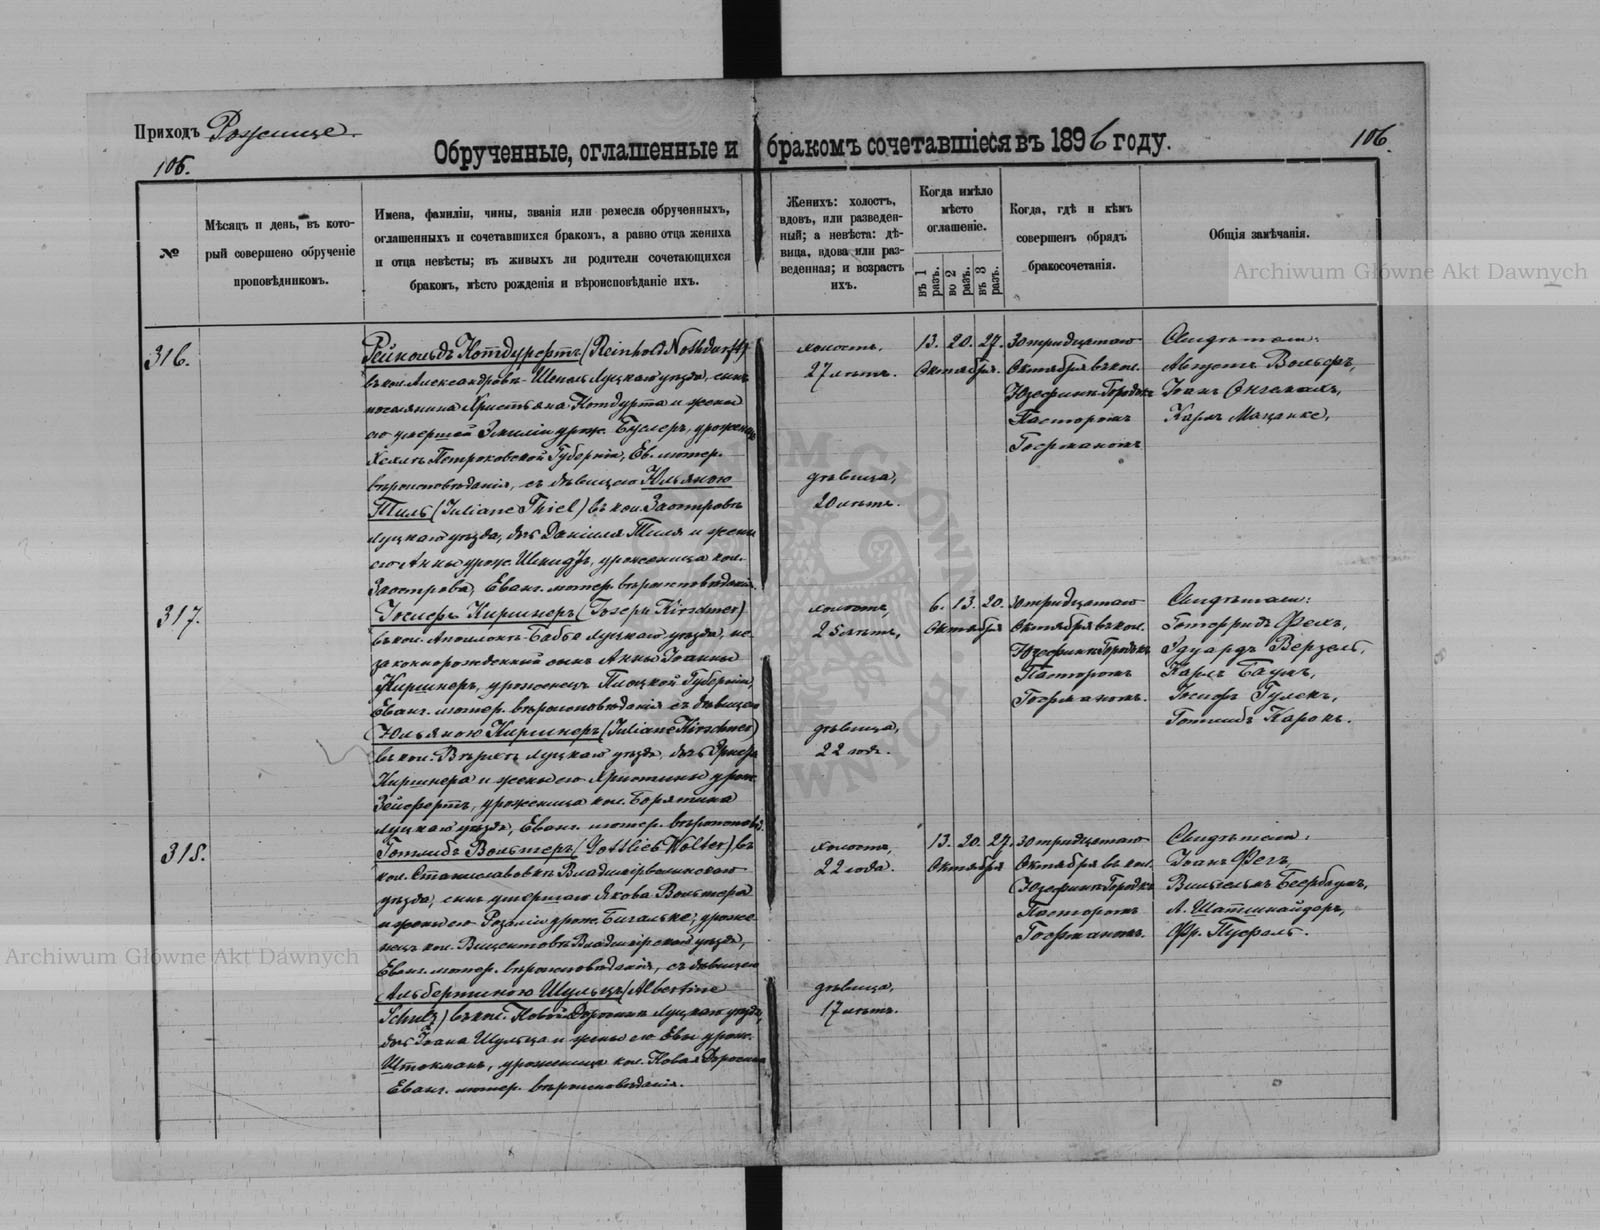 Приходъ Рожище.
106.
Обрученные, оглашенные и бракомъ сочетавшіеся въ 1896 году.
106.
№
Мѣсяцъ и день, въ кото-
рый совершено обрученіе
проповѣдникомъ.
Имена, фамиліи, чины, званія или ремесла обрученныхъ,
оглашенныхъ и сочетавшихся бракомъ, а равно отца жениха
и отца невѣсты; въ живыхъ ли родители сочетающихся
бракомъ, мѣсто рожденія и вѣроисповѣданіе ихъ.
Женихъ: холостъ,
вдовъ, или разведен-
ный; а невѣста: дѣ-
вица, вдова или раз-
веденная; и возрастъ
ихъ.
Когда имѣло
мѣсто
оглашеніе.
въ 1 разъ.
во 2 разъ.
въ 3 разъ.
Когда, гдѣ и кѣмъ
совершенъ обрядъ
бракосочетанія.
Общія замѣчанія.
316.
Рейнольдъ Нотдурфтъ (Reinhold Nothdurft)
въ кол. Александровкѣ- Луцкаго уѣзда, сынъ
поселянина Христьяна Нотдурта и жены
его умершей Эмиліи урож. уроженецъ
Петроковской Губерніи, Ев. лютер.
вѣроисповѣданія, съ дѣвицею Юльяною
Тиль (Juliane Thiel) въ кол. Заостровѣ
Луцкаго уѣзда, дочь Даніила Тиля и жены
его Анны урож. Шмидтъ, уроженица кол.
Заострова, Еванг. лютер. вѣроисповѣданія.
холостъ,
27 лѣтъ.
дѣвица,
20 лѣтъ.
13. 20. 27.
Октября.
30 тридцатаго
Октября въ кол.
Юзефинъ Городокъ
Пасторомъ
Госрманомъ
Свидѣтели:
Августъ Вольфъ,
Іоанъ
Карлъ Маценке,
317.
Іосифъ Киршнеръ (Joseph Kirschner)
въ кол. Аполлонъ-Бабье Луцкаго уѣзда, не-
законнорожденный сынъ Анны Іоанны
Киршнеръ, уроженецъ Плоцкой Губерніи,
Еванг. лютер. вѣроисповѣданія съ дѣвицею
Юльяною Киршнеръ (Juliane Kirschner)
въ кол. Луцкаго уѣзда, дочь
Киршнера и жены его Христины урож.
Зейфертъ, уроженица кол. Борятина
Луцкаго уѣзда, Еванг. лютер. вѣроисповѣд.
холостъ,
25 лѣтъ,
дѣвица,
22 годъ.
6. 13. 20.
Октября
30 тридцатаго
Октября въ кол.
Юзефинъ Городокъ
Пасторомъ
Госрманомъ.
Свидѣтели:
Готфридъ
Эдуардъ
Карлъ Баумъ,
Іосифъ Гулекъ,
Готлибъ
318.
Готлибъ Вольтеръ (Gottlieb Wolter) въ
кол. Станиславовкѣ Владимірволынскаго
уѣзда, сынъ умершаго Якова Вольтера
и жены его Розаліи урож. уроже-
нецъ кол. Владимірскаго уѣзда,
Еванг. лютер. вѣроисповѣданія, съ дѣвицею
Альбертиною Шульцъ (Albertine
Schulz) въ кол. Новой Луцкаго уѣзда,
дочь Іоана Шульца и жены его Евы урож.
Штокманъ, уроженица кол. Новая
Еванг. лютер. вѣроисповѣданія.
холостъ,
22 года.
дѣвица,
17 лѣтъ.
13. 20. 27.
Октября
30 тридцатаго
Октября въ кол.
Юзефинъ Городокъ
Пасторомъ
Госрманомъ.
Свидѣтели:
Іоанъ
Вильгельмъ
Л. Шатшнайдеръ,
Фр. Пуфаль.
Archiwum Główne Akt Dawnych
Archiwum Główne Akt Dawnych